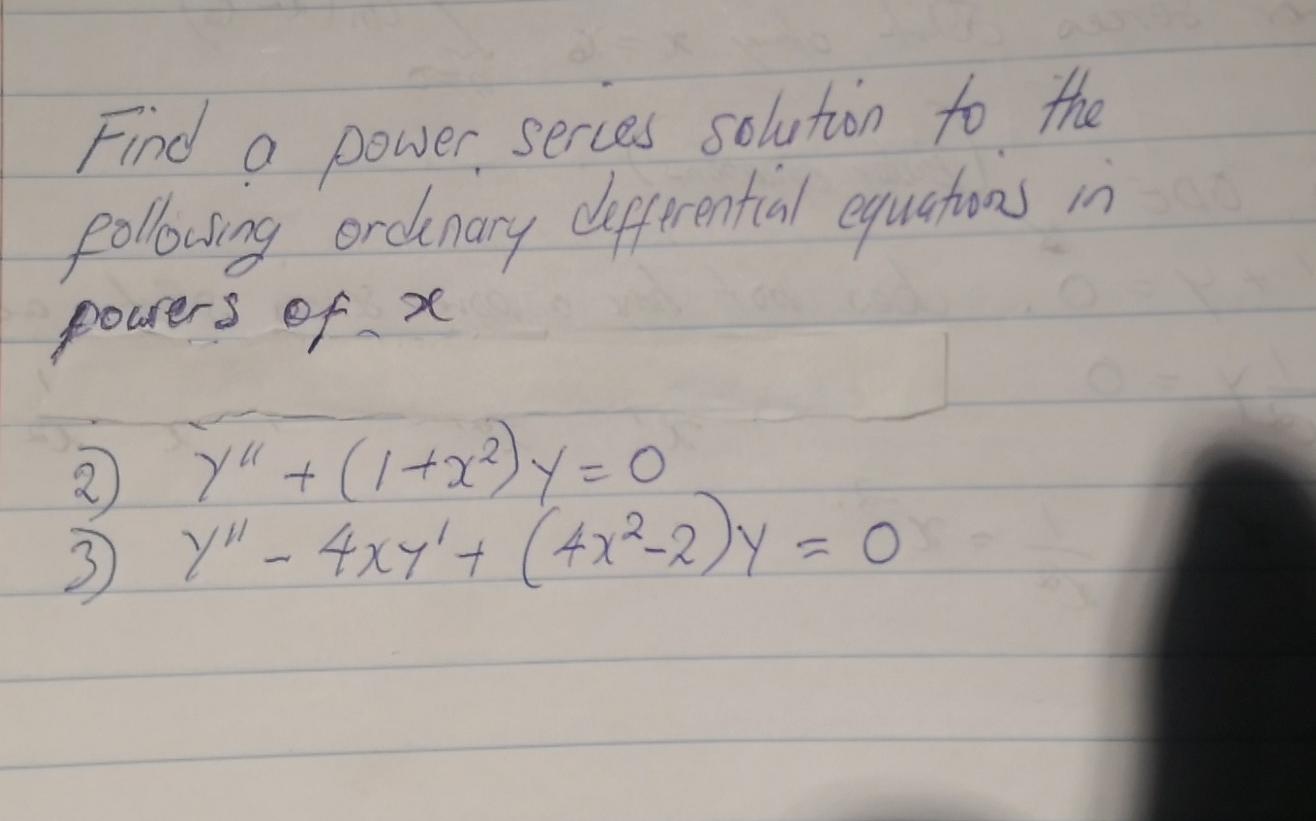 Find a power series solution to the
following ordinary differential equations in
powers of x
2) y" + (1+x²)y = 0
3) y" - 4xy' + (4x²-2)y = 0